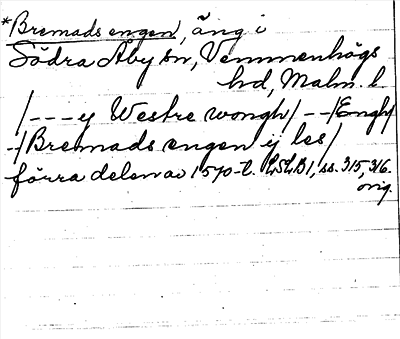 *Bremads engen, äng i
Södra Åby sn, Vemmenhögs
hd, Malm. l.
/--- y Westre wongh/--/Engh/
-/Bremads engen ij les/
förra delen av 1570-t. LSLB1, ss. 315, 316.
orig.